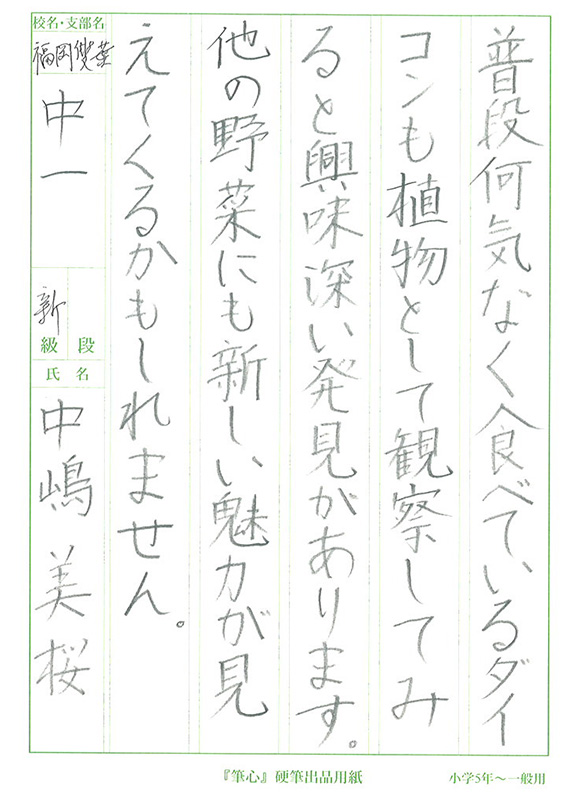 普段何気なく食べているダイ
コンも植物として観察してみ
ると興味深い発見があります。
他の野菜にも新しい魅力が見
えてくるかもしれません。
校名・支部名
福岡雙葉
中一
新
級 段
氏名
中嶋美桜
『筆心』硬筆出品用紙
小学5年～一般用